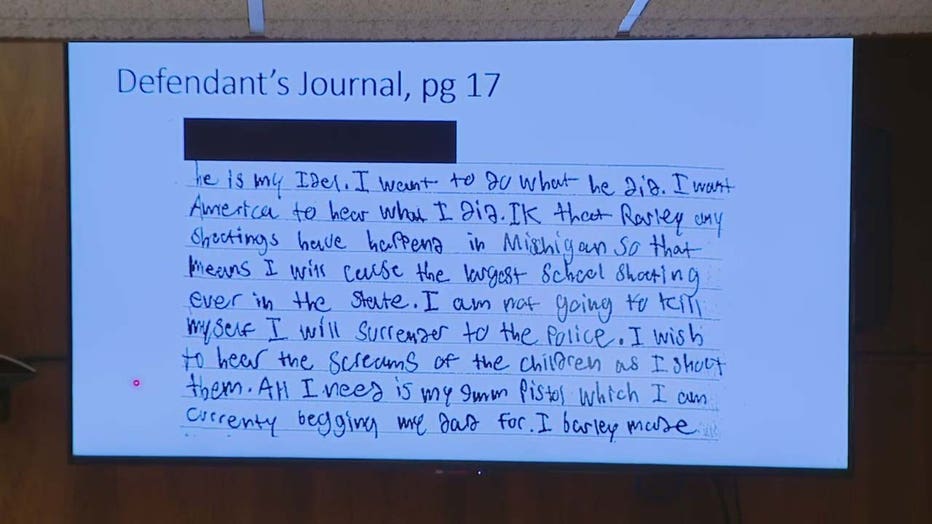 Defendant's Journal, pg 17
he is my Idel. I want to do what he did. I want
America to hear what I did. IK that Rarley any
shootings have happend in Michigan so that
means I will cause the largest School shooting
ever in the State. I am not going to kill
myself I will surrender to the Police. I wish
to hear the screams of the children as I shoot
them. All I need is my 9mm Pistol which I am
currenty begging my dad for. I barley made